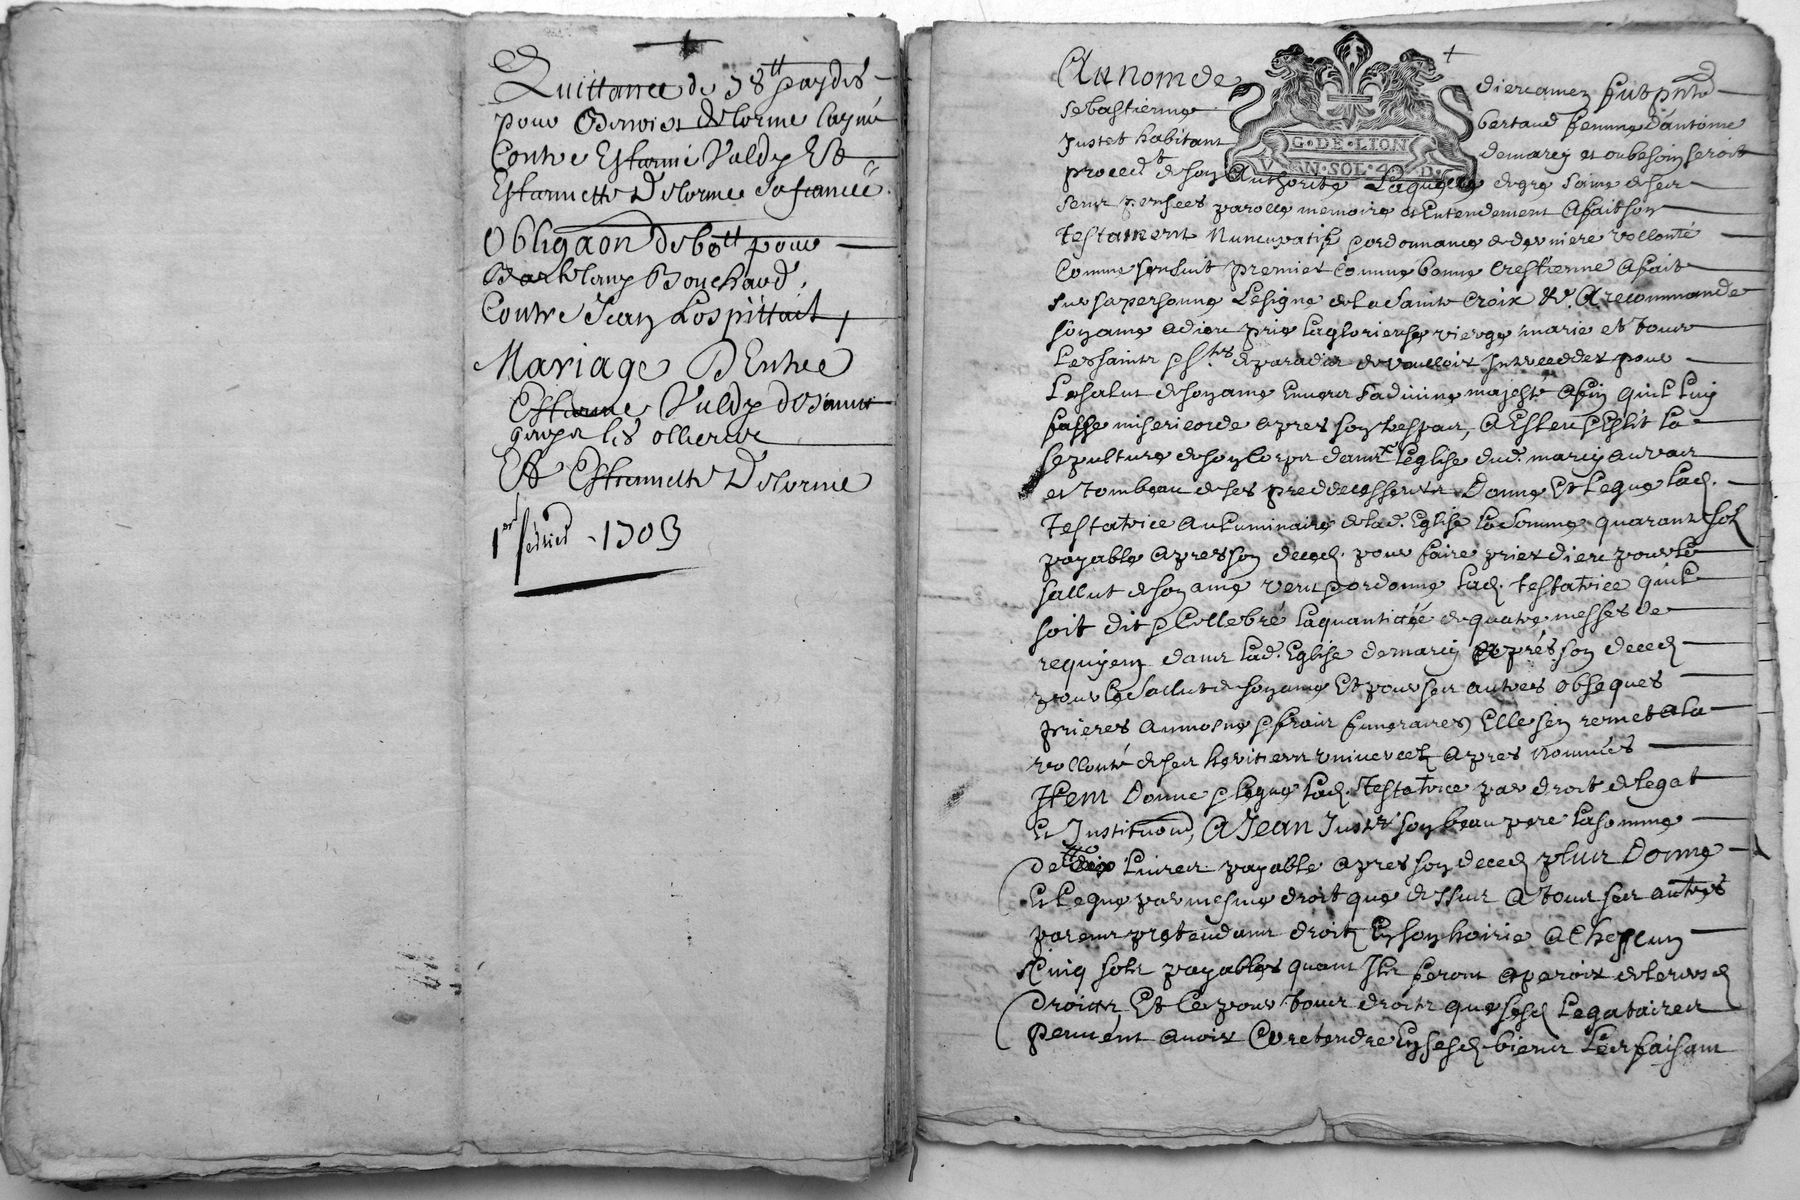 Quittance de 38tt paydes
pour Benoist Delorme layné
Contre Estienne Valdy Et
Estiennette Delorme sa fiancée.
Obligaon de 60tt pour
Barthelemy Bouchaud,
Contre Jean Lospittait,
Mariage D'Entre
Estienne Valdy de Saint
les ollieres
Et Estiennette Delorme
1er fevrier - 1703
Au nom de dieu amen fut pnte
sebastienne bertaud femme d'antoine
Justet habitant demarcy et oubesoin seroit
G·DE·LION
V AN·SOL·4 D.
proced.t de son Authorite Laquelle de gre saine de ses
sens pensees parolle memoire et Entendement A fait son
testament Nuncupatif & ordonnance de derniere vollonté
Comme sensuit premier Comme bonne Crestienne A fait
sur sa personne Le signe de La sainte Croix &. A recommande
son ame a dieu prie La glorieuse vierge marie et tous
Les saints & stes de paradis de voulloir Interceder pour
Le salut de son ame Envers sa divine majesté afin quil Luy
fasse misericorde apres son trespas, A Esleu & Eslit La
sepulture de son Corps dans L'eglise dud. marcy au vas
et tombeau de ses preddecesseurs Donne Et Legue Lad.
testatrice Au Luminaire de Lad. Eglise La somme quarante sols
payable apres son deced. pour faire prier dieu pour Le
sallut de son ame veut & ordonne Lad. testatrice quil
soit dit & Cellebré La quantitée de quatre messes de
requiem dans Lad. Eglise demarcy Apres son deced
pour Le sallut de son ame Et pour ses autres obseques
prieres aumosne & frais funeraires Elle sen remet a La
vollonté de ses heritiers univercels apres nommés
Item Donne & Legue Lad. testatrice par droit de legat
Et Institution, A Jean Justet son beau pere La somme
de dix Livres payable apres son deced plus Donne
Et Legue par mesme droit que dessus A tous ses autres
parens pretendans droit En son hoirie a Chescun
Cinq sols payables quant Ils feront aparoir de leursd
droits Et Ce pour tous droits que sesd Legataires
peuvent avoir & pretendre En sesd. biens Les faisant